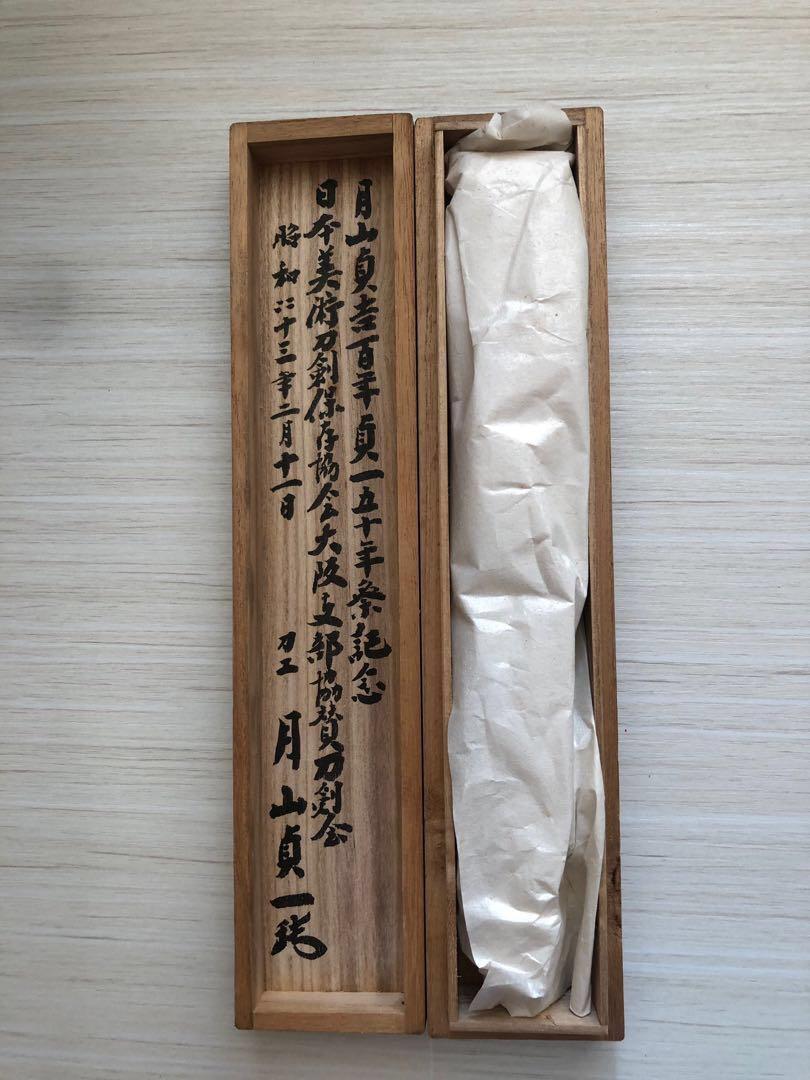 月山貞吉百年貞一五十年祭記念
日本美術刀剣保存協会大阪支部協賛刀剣会
昭和四十三年二月十一日
刀工 月山貞一